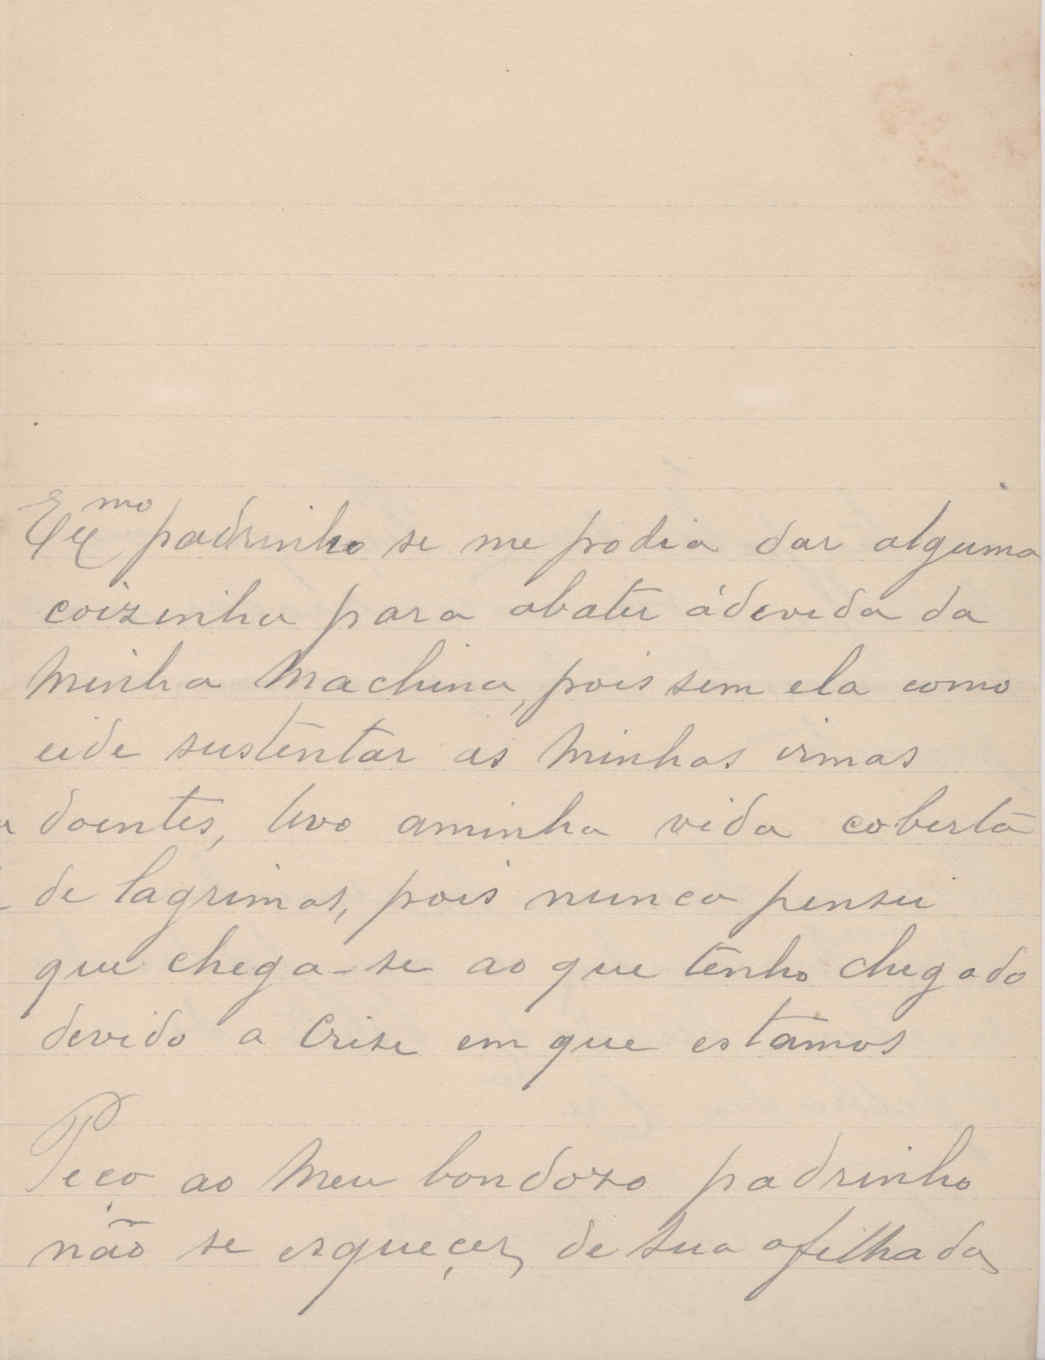 Exmo padrinho se me podia dar alguma
coizinha para abater ádevida da
Minha Machina, pois sem ela como
eide sustentar as Minhas irmas
doentes, tivo aminha vida coberta
de lagrimas, pois nunca pensei
que chega-se ao que tenho chegado
devido a Crise em que estamos
Peço ao Meu bondozo padrinho
não se esqueçer, de sua afilhada,